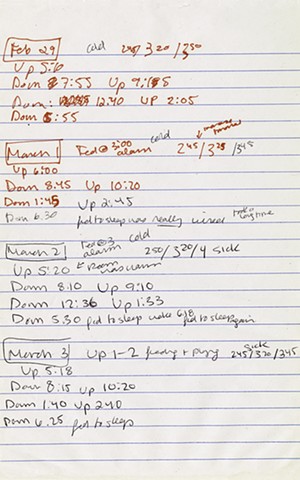 Feb 29 cold 245/320/350
Up 5:16
Down 7:55 Up 9:15
Down: 12:40 UP 2:05
Down 5:55
March 1 Fed @ 3:00 alarm cold 245/325/345
Up 6:00
Down 8:45 Up 10:20
Down 1:45 Up 2:45
Down 6:30 fed to sleep was really wired took a long time
March 2 Fed @ 3 alarm cold 250/320/4 sick
Up 5:20 Room was warm
Down 8:10 Up 9:10
Down 12:36 Up 1:33
Down 5:30 fed to sleep woke 6:18 fed to sleep again
March 3 Up 1-2 feeding + sick 245/320/345
Up 5:18
Down 8:15 Up 10:20
Down 1:40 Up 2:40
Down 6:25 fed to sleep